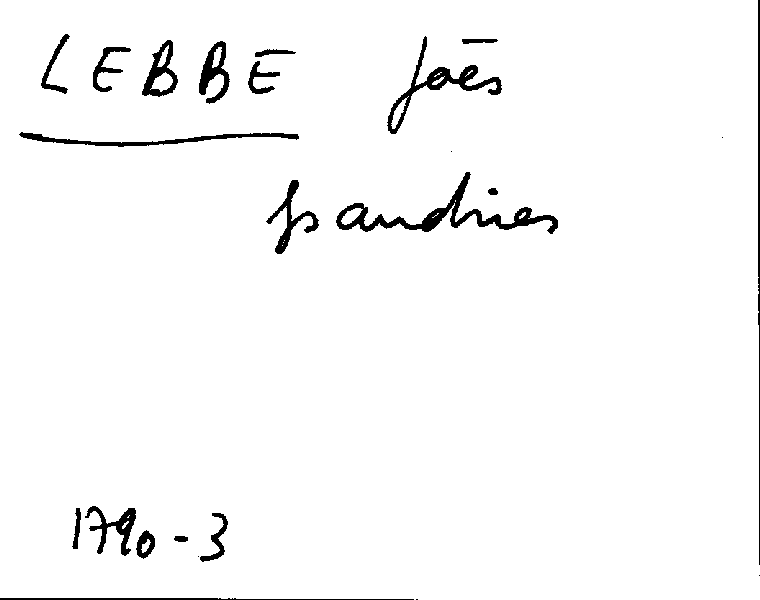 LEBBE Joēs
fs andries
1790-3